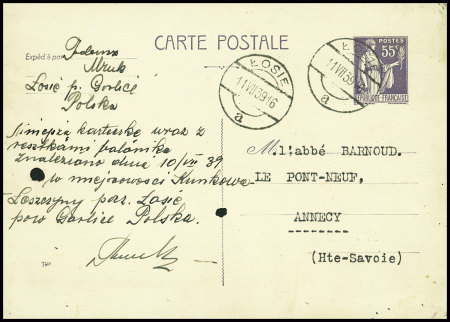 CARTE POSTALE
Expédié par
Tadeusz
Mruk
Łosie p. Gorlice
Polska
Niniejszą karteczkę wraz z
resztkami balonika
znaleziono dnia 10/VII 39
w miejscowości Kunkowa
Leszczyny par. Łosie
pow Gorlice Polska.
ŁOSIE
11 VII 39 16
a
ŁOSIE
11 VII 39
a
POSTES
55c
REPUBLIQUE FRANÇAISE
M.l'abbé BARNOUD.
LE PONT-NEUF,
ANNECY
--------
(Hte-Savoie)